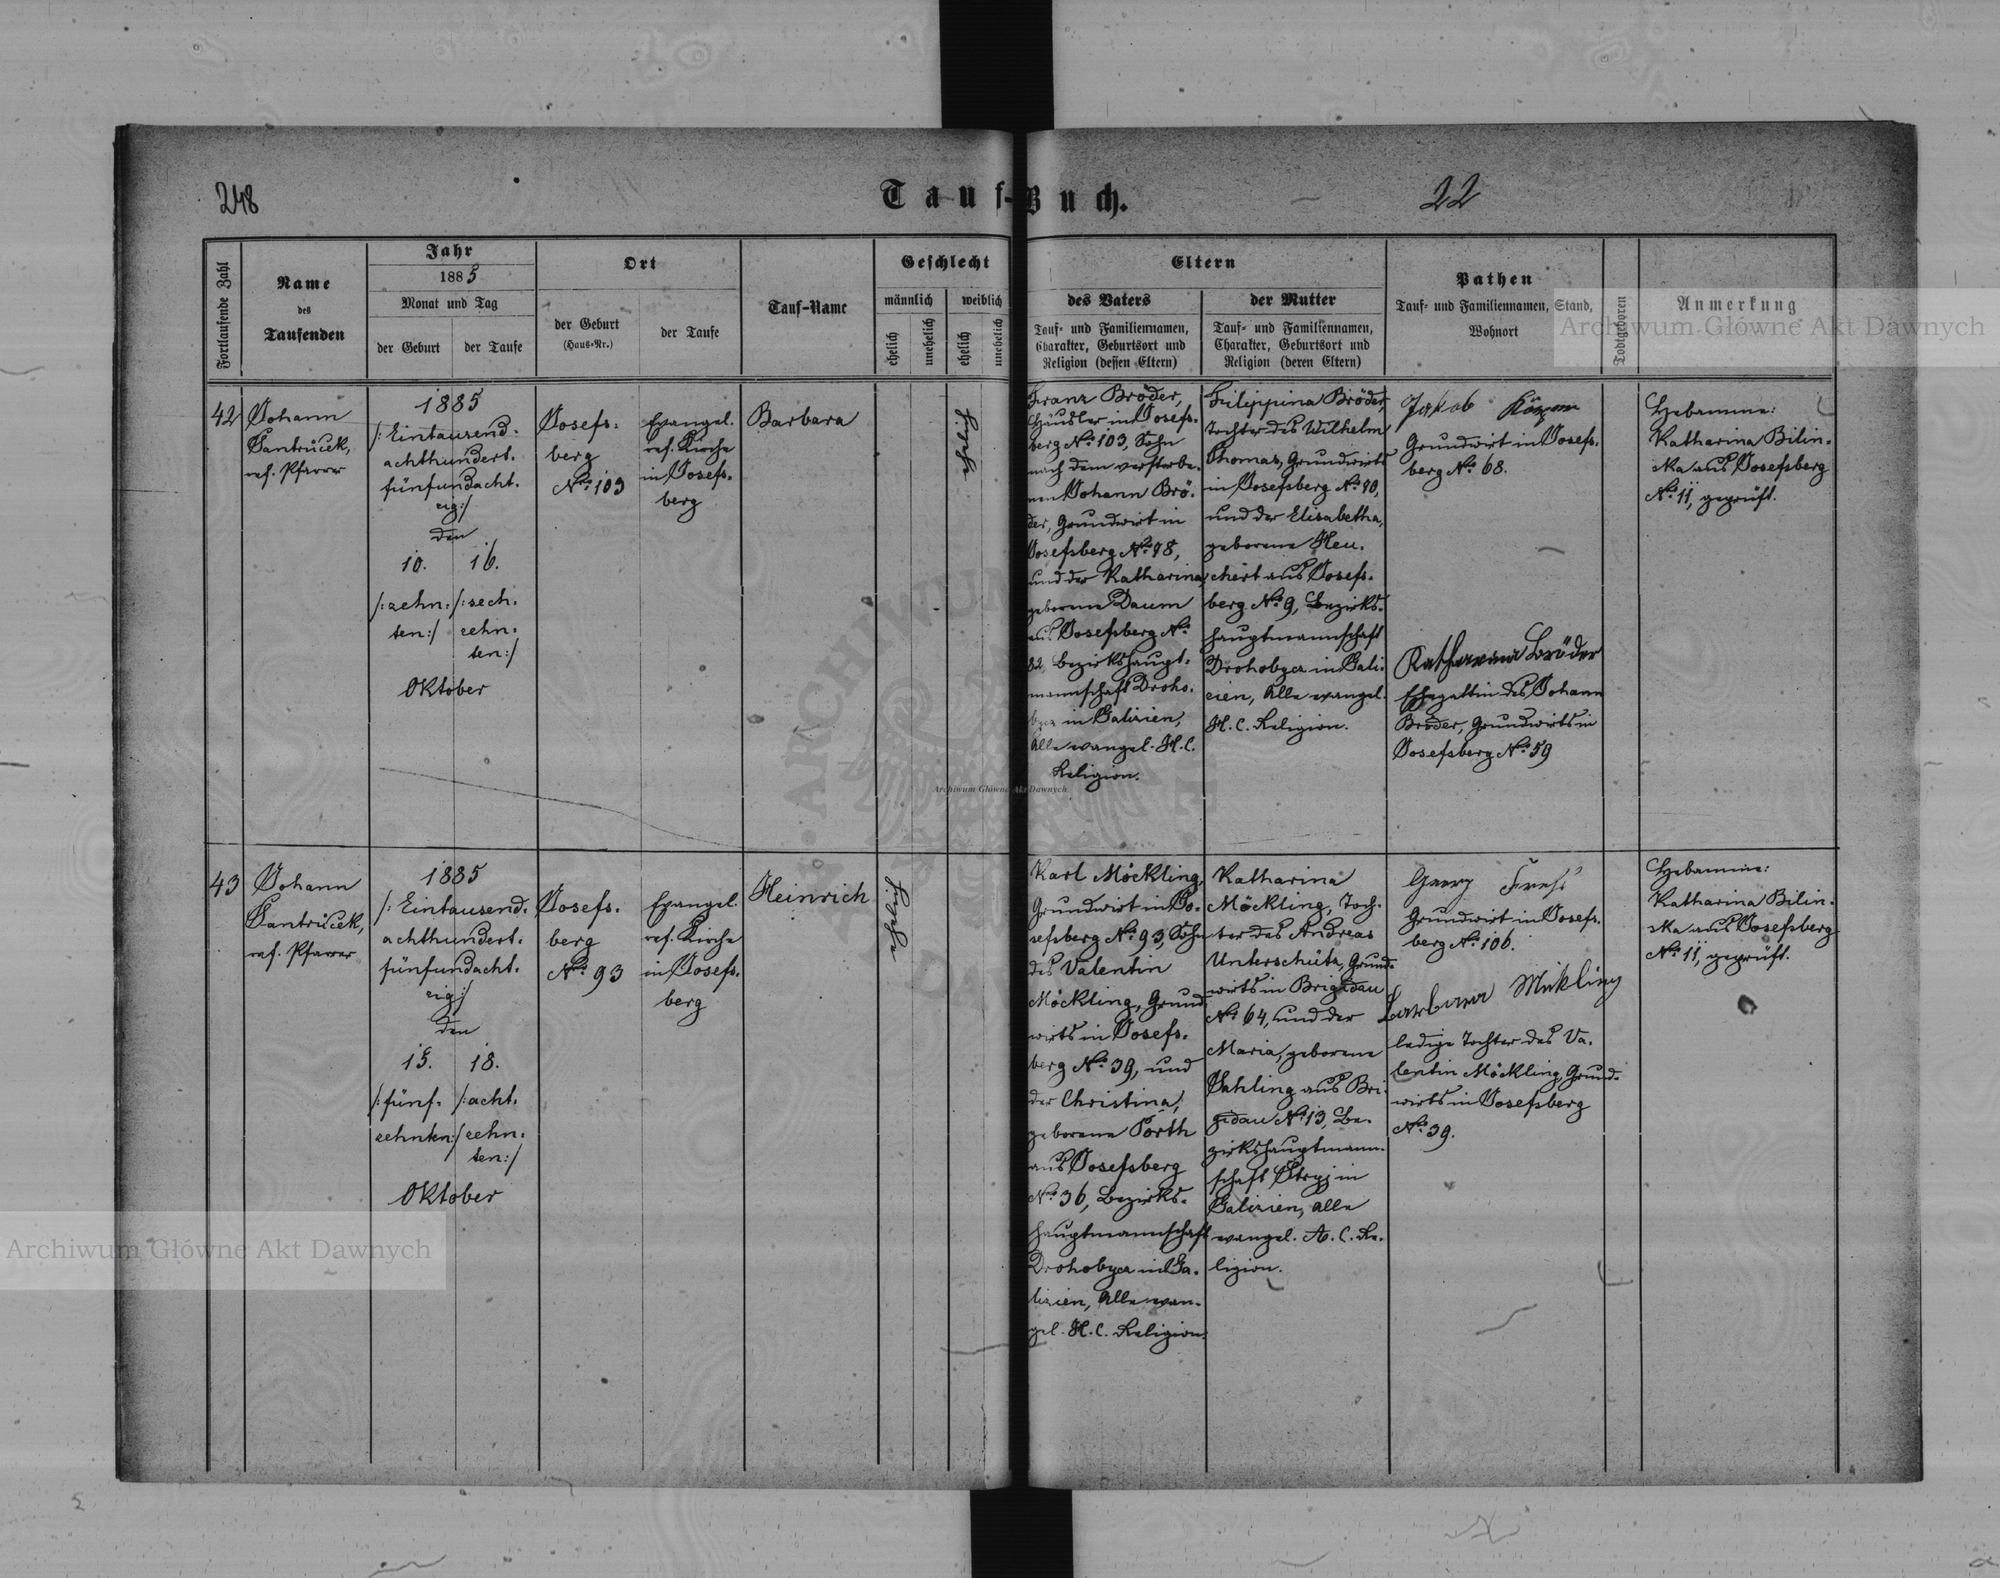 248
Tauf-Buch.
22
Fortlaufende Zahl
Name
des
Taufenden
Jahr
1885
Monat und Tag
der Geburt
der Taufe
Ort
der Geburt
(Haus-Nr.)
der Taufe
Tauf-Name
Geschlecht
männlich
weiblich
ehelich
unehelich
ehelich
unehelich
Eltern
des Vaters
Tauf- und Familiennamen,
Charakter, Geburtsort und
Religion (dessen Eltern)
der Mutter
Tauf- und Familiennamen,
Charakter, Geburtsort und
Religion (deren Eltern)
Pathen
Tauf- und Familiennamen, Stand,
Wohnort
Todtgeboren
Anmerkung
Archiwum Główne Akt Dawnych
42
Johann
Jantrücek,
ref. Pfarrer
1885
/: Eintausend-
achthundert-
fünfundacht-
zig:/
den
10.
/:zehn-
ten:/
16.
/:sech-
zehn-
ten:/
Oktober
Josefs-
berg
No. 103
Evangel.
ref. Kirche
in Josefs-
berg
Barbara
ehelich
Franz Bröder,
Häusler in Josefs-
berg No. 103, Sohn
nach dem verstorbe-
nen Johann Brö-
der, Grundwirt in
Josefsberg No. 78,
und der Katharina
geborene Daum
aus Josefsberg No.
82, Bezirkshaupt-
mannschaft Droho-
bycz in Galizien,
Alle evangel. H. C.
Religion.
Filippina Bröder,
Tochter des Wilhelm
Thomas, Grundwirts
in Josefsberg No. 70,
und der Elisabetha,
geborene Heu-
chert aus Josefs-
berg No. 9, Bezirks-
hauptmannschaft
Drohobycz in Gali-
zien, Alle evangel.
H. C. Religion.
Jakob
Grundwirt in Josefs-
berg No. 68.
Katharina Bröder
Ehegattin des Johann
Bröder, Grundwirts in
Josefsberg No. 59
Hebamme:
Katharina Bilin-
ska aus Josefsberg
No. 11, geprüft.
43
Johann
Jantrücek,
ref. Pfarrer
1885
/: Eintausend-
achthundert-
fünfundacht-
zig:/
den
15.
/:fünf-
zehnten:/
18.
/:acht-
zehn-
ten:/
Oktober
Josefs-
berg
No. 93
Evangel.
ref. Kirche
in Josefs-
berg
Heinrich
ehelich
Karl Möckling,
Grundwirt in Jo-
sefsberg No. 93, Sohn
des Valentin
Möckling, Grund-
wirts in Josefs-
berg No. 39, und
der Christina,
geborene Porth
aus Josefsberg
No. 36, Bezirks-
hauptmannschaft
Drohobycz in Ga-
lizien, Alle evan-
gel. H. C. Religion.
Katharina
Möckling, Toch-
ter des Andreas
Unterschütz, Grund-
wirts in Brigidau
No. 64, und der
Maria, geborene
Jahling aus Bri-
gidau No. 13, Be-
zirkshauptmann-
schaft Stryj in
Galizien, Alle
evangel. A. C. Re-
ligion.
Georg
Grundwirt in Josefs-
berg No. 106.
Barbara Mökling
ledige Tochter des Va-
lentin Möckling, Grund-
wirts in Josefsberg
No. 39.
Hebamme:
Katharina Bilin-
ska aus Josefsberg
No. 11, geprüft.
Archiwum Główne Akt Dawnych
Archiwum Główne Akt Dawnych